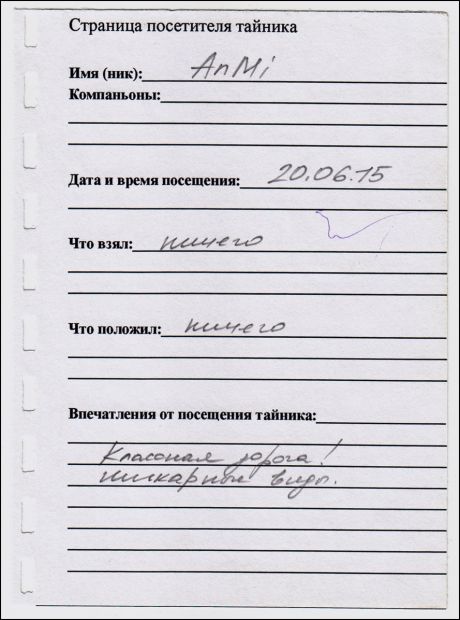 Страница посетителя тайника
Имя (ник): AnMi
Компаньоны:
Дата и время посещения: 20.06.15
Что взял: ничего
Что положил: ничего
Впечатления от посещения тайника:
Классная дорога!
шикарные виды.